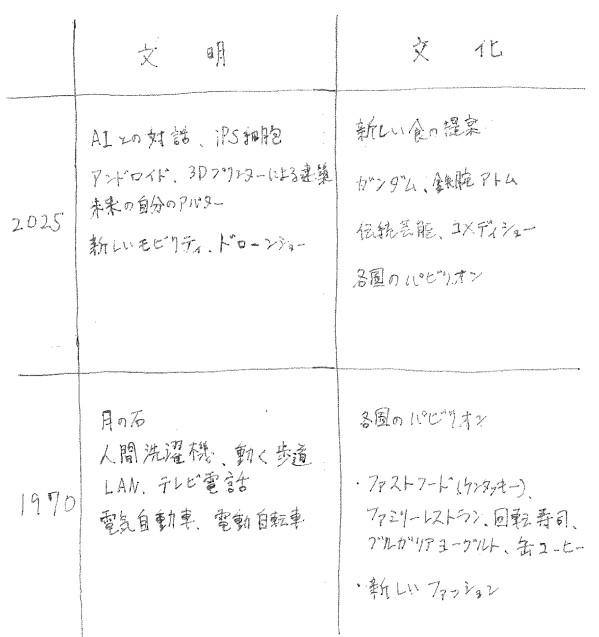 文明
文化
2025
AIとの対話、iPS細胞
アンドロイド、3Dプリンターによる建築
未来の自分のアバター
新しいモビリティ、ドローンショー
新しい食の提案
ガンダム、鉄腕アトム
伝統芸能、コメディショー
各国のパビリオン
1970
月の石
人間洗濯機、動く歩道
LAN、テレビ電話
電気自動車、電動自転車
各国のパビリオン
・ファストフード(ケンタッキー)、
ファミリーレストラン、回転寿司、
ブルガリアヨーグルト、缶コーヒー
・新しいファッション